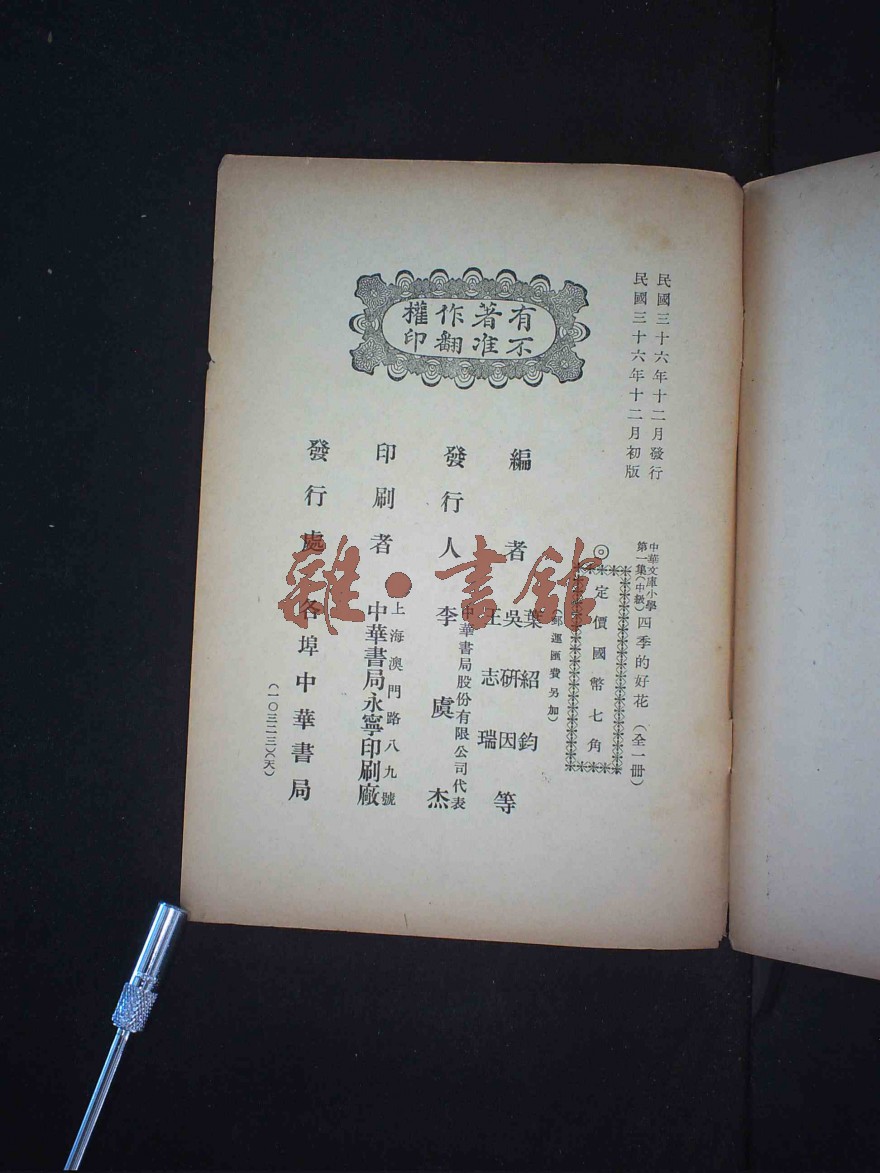 民國三十六年十二月發行
民國三十六年十二月初版
中華文庫小學
第一集(中級)
四季的好花 (全一冊)
◎定價國幣七角
(郵運匯費另加)
有著作權
不准翻印
編者
葉紹鈞
吳研因
王志瑞
等
發行人
中華書局股份有限公司代表
李虞杰
印刷者
上海澳門路八九號
中華書局永寧印刷廠
發行處
各埠中華書局
(一〇三二三)(天)
雜·書館